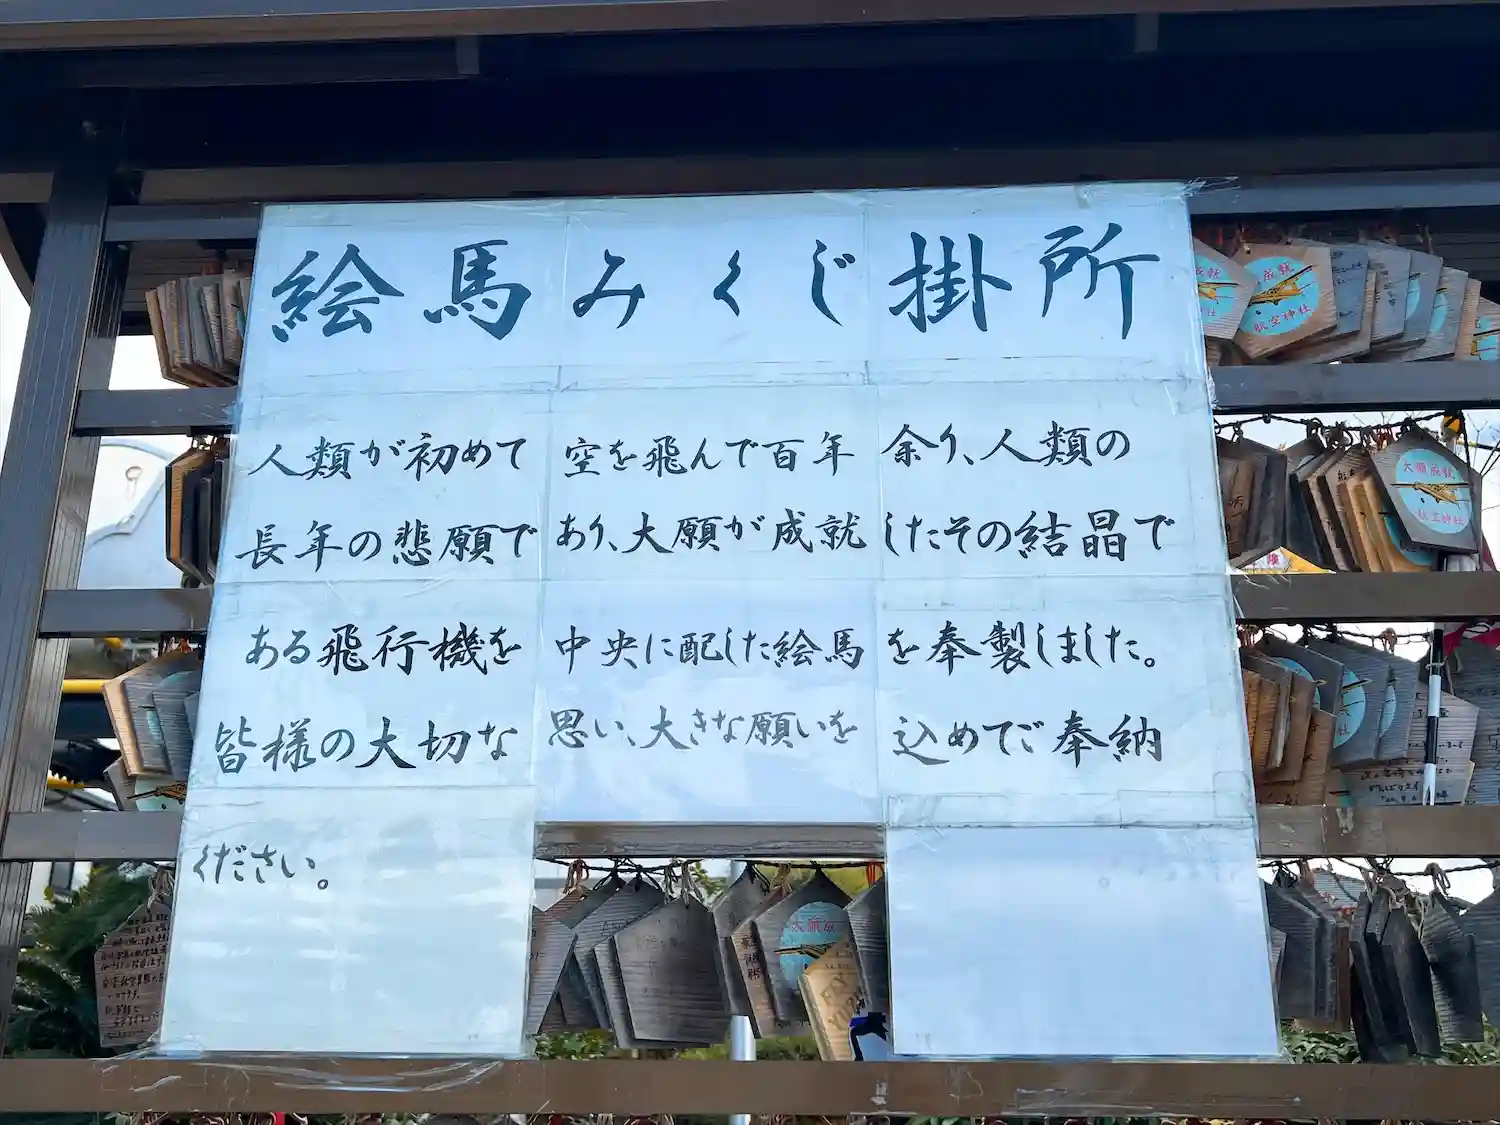 絵馬みくじ掛所
人類が初めて空を飛んで百年余り、人類の
長年の悲願であり、大願が成就したその結晶で
ある飛行機を中央に配した絵馬を奉製しました。
皆様の大切な思い、大きな願いを込めてご奉納
ください。
成就
航空神社
大願成就
航空神社
大願成